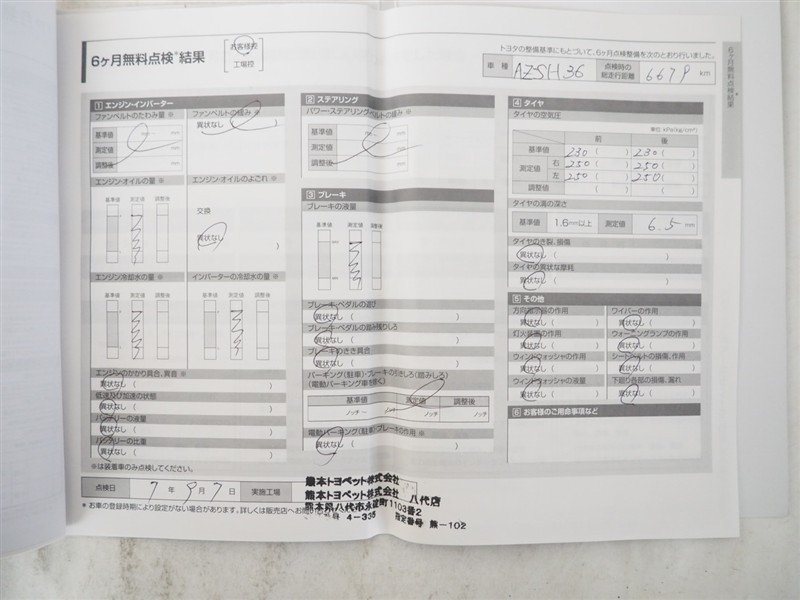 6ヶ月無料点検※結果
お客様控
工場控
トヨタの整備基準にもとづいて、6ヶ月点検整備を次のとおり行いました。
車種 AZSH36 点検時の総走行距離 6679 km
6ヶ月無料点検結果
1 エンジン・インバーター
ファンベルトのたわみ量 ※
基準値 mm
測定値 mm
調整後 mm
ファンベルトの緩み ※
異状なし
エンジン・オイルの量 ※
基準値 測定値 調整後
エンジン・オイルのよごれ ※
交換
異状なし
エンジン冷却水の量 ※
基準値 測定値 調整後
インバーターの冷却水の量 ※
基準値 測定値 調整後
エンジンのかかり具合、異音 ※
異状なし ( )
低速及び加速の状態
異状なし ( )
バッテリーの液量
異状なし ( )
バッテリーの比重
異状なし ( )
※は装着車のみ点検してください。
2 ステアリング
パワー・ステアリングベルトの緩み ※
基準値 mm
測定値 mm
調整後 mm
3 ブレーキ
ブレーキの液量
基準値 測定値 調整後
ブレーキ・ペダルの遊び
異状なし ( )
ブレーキ・ペダルの踏み残りしろ
異状なし ( )
ブレーキのきき具合
異状なし ( )
パーキング(駐車)・ブレーキの引きしろ(踏みしろ)
(電動パーキング車を除く)
基準値 測定値 調整後
ノッチ〜 ノッチ ノッチ ノッチ
電動パーキング(駐車)・ブレーキの作用 ※
異状なし ( )
4 タイヤ
タイヤの空気圧
単位 kPa(kg/cm²)
前 後
基準値 230 ( ) 230 ( )
測定値 右 250 ( ) 250 ( )
左 250 ( ) 250 ( )
調整値 ( ) ( )
タイヤの溝の深さ
基準値 1.6mm以上 測定値 6.5 mm
タイヤのき裂、損傷
異状なし ( )
タイヤの異状な摩耗
異状なし ( )
5 その他
方向指示器の作用 ワイパーの作用
異状なし ( ) 異状なし ( )
灯火装置の作用 ウォーニングランプの作用
異状なし ( ) 異状なし ( )
ウィンドウォッシャの作用 シートベルトの損傷、作用
異状なし ( ) 異状なし ( )
ウィンドウォッシャの液量 下回り各部の損傷、漏れ
異状なし ( ) 異状なし ( )
6 お客様のご用命事項など
点検日 7年9月7日 実施工場
熊本トヨペット株式会社
熊本トヨペット株式会社 八代店
熊本県八代市永碇町1103番2
4-335 指定番号 熊-102
＊お車の登録時期により設定がない場合があります。詳しくは販売店へお問い